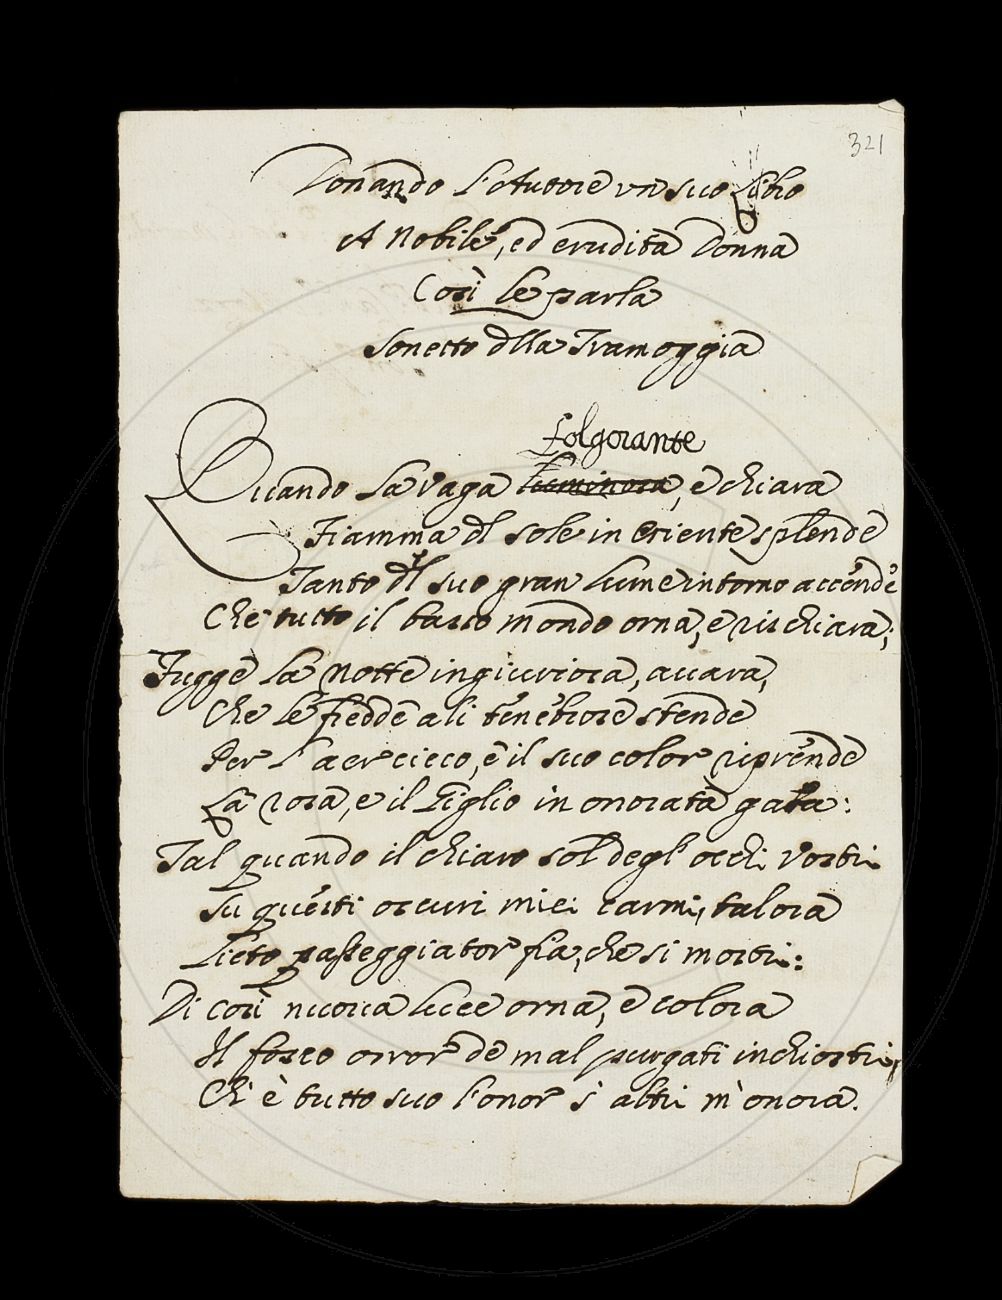 321
Donando l'Autore un suo Libro
A Nobile, ed erudita Donna
Così le parla
Sonetto dlla Tramoggia
folgorante
Quando la vaga luminosa, e chiara
Fiamma dl sole in Oriente splende
Tanto dl suo gran lume intorno accende
Che tutto il basso mondo orna, e rischiara;
Fugge la notte ingiuriosa, avara,
Che le fredde ali tenebrose stende
Per l'aer cieco, e il suo color riprende
La rosa, e il Giglio in onorata gara:
Tal quando il chiaro sol degl'occhi vostri
Su questi oscuri miei carmi, talora
Lieto passeggiator fia, che si mostri:
Di così nuova luce orna, e colora
Il fosco orror de mal purgati inchiostri,
Ch'è tutto suo l'onor s'altri m'onora.